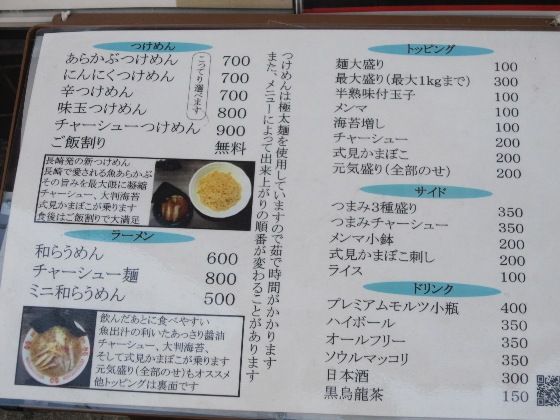 つけめん
あらかぶつけめん 700
にんにくつけめん 700
辛つけめん 700
味玉つけめん 800
チャーシューつけめん 900
ご飯割り 無料
こってり選べます
長崎発の新つけめん
長崎で愛される魚あらかぶ
その旨みを最大限に凝縮
チャーシュー、大判海苔
式見かまぼこが乗ります
食後はご飯割りで大満足
ラーメン
和らうめん 600
チャーシュー麺 800
ミニ和らうめん 500
飲んだあとに食べやすい
魚出汁の利いたあっさり醤油
チャーシュー、大判海苔、
そして式見かまぼこが乗ります
元気盛り(全部のせ)もオススメ
他トッピングは裏面です
つけめんは極太麺を使用していますので茹で時間がかかります
また、メニューによって出来上がりの順番が変わることがあります
トッピング
麺大盛り 100
最大盛り(最大1kgまで) 300
半熟味付玉子 100
メンマ 100
海苔増し 100
チャーシュー 200
式見かまぼこ 200
元気盛り(全部のせ) 200
サイド
つまみ3種盛り 350
つまみチャーシュー 350
メンマ小鉢 200
式見かまぼこ刺し 200
ライス 100
ドリンク
プレミアムモルツ小瓶 400
ハイボール 350
オールフリー 350
ソウルマッコリ 350
日本酒 300
黒烏龍茶 150